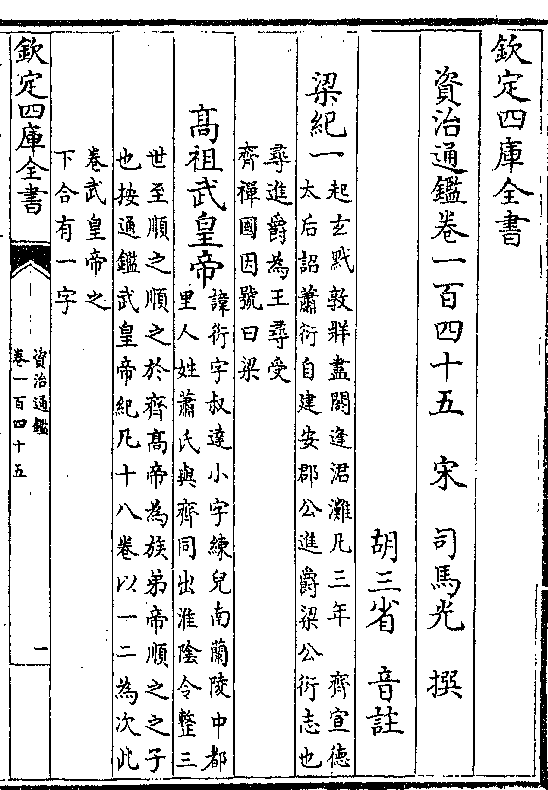 欽定四庫全書
資治通鑑卷一百四十五　宋　司馬光　撰
胡三省　音註
梁紀一
起玄黓敦牂盡閼逢涒灘凡三年　齊宣德
太后詔蕭衍自建安郡公進爵梁公衍志也
尋進爵為王尋受
齊禪國因號曰梁
高祖武皇帝
諱衍字叔達小字練兒南蘭陵中都
里人姓蕭氏與齊同出淮隂令整三
世至順之順之於齊髙帝為族弟帝順之之子
也按通鑑武皇帝紀凡十八卷以一二為次此
卷武皇帝之
下合有一字
欽定四庫全書
資治通鑑
卷一百四十五
一